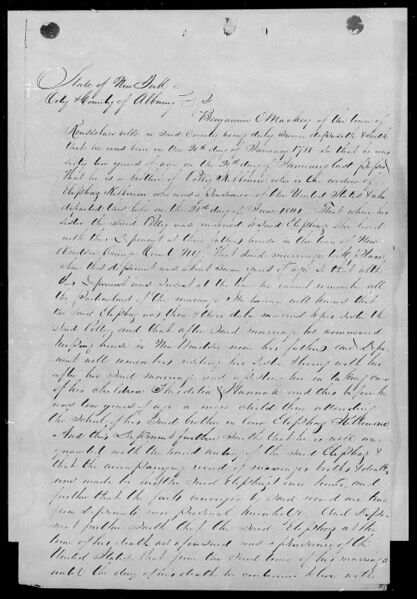 State of New York
City & County of Albany } S.S.
Benjamin C Mackey of the town of
Rensselaerville in Said County being duly Sworn deposeth & saith
that he was born on the 20th day of January 1781 So that he was
sixty two years of age on the 20th day of January last past
That he is a brother of Polley Kilburn who is the widow of
Eliphaz Kilburn who was a Pensioner of the United States & who
departed this life on the day of June 1841. That when his
sister the Said Polley was married to Said Eliphaz She lived
with this Deponent at their fathers house in the town of New
Windsor Orange County N.Y. That Said marriage took place
when this deponent was about Seven years of age & that altho
this Deponent was present at the time he cannot remember all
the particulars of the marriage He knows well that
the Said Eliphaz was then & there duly married to his sister the
Said Polley and that after Said marriage he commenced
keeping house in New Windsor near his fathers and Depo-
nent well remembers visiting his Sister & living with her
after her Said marriage and assisting her in taking care
of her children Theodotia & Hannah and this before he
was ten years of age a mere child then attending
the School of his Said brother in law Eliphaz Kilburn
And this Deponent further Saith that he is well ac-
quainted with the hand writing of the Said Eliphaz &
that the accompanying record of marriages births & deaths
was made by in the Said Eliphaz's own hand, and
further that the facts in Said record are true
personal knowledge. And Depo-
nent further Saith that the Said Eliphaz at the
time of his death as aforesaid was a pensioner of the
United States that from the Said time of his marriage
until the day of his death he continued to live with